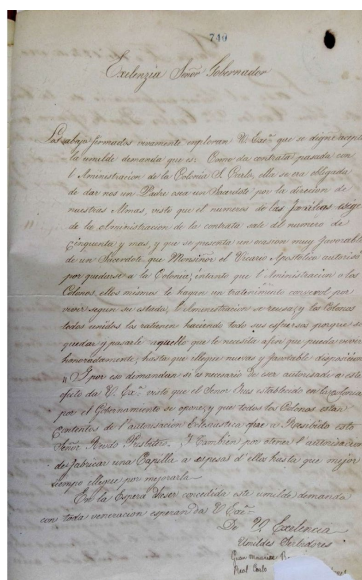 740
Exilenzia Señor Gobernador
Los abajo firmados vivamente suplican V. Exa. que se digne acep
la umilde demanda que es: Como da contrata pasada con
l'Aministracion de la Colonia S. Carlo, ella se era obligada
de dar nos un Padre osea un Saserdote por la direcion de
nuestras Almas, visto que el numeros de las familias
de la Aministracion de la contrata sale del numero de
Cinquenta y mas, y que se presenta un ocasion muy favorable
de un Sacerdote que Monsiñor el Vicario Apostolico autorisó
por quedarse a la Colonia; intanto que l'Aministracion a los
Colonos, ellos mismos le hagan un tratenimento
vivir segun su estado, l'Aministracion se reusa; y los Colonos
todos unidos los ratienen haciendo todo sus esfuersos porque
quedar y pasarle aquello que le necesite afin que pueda vivir
honoradamente, hasta que llegue nuevas y favorable disposicion
Y por eso demandan si es necesario de ser autorisado a este
efeto da V. Exa. visto que el Señor
por el Gobernamiento se opone; y que todos los Colonos estan
Contentos de l'autorisacion Eclesiastica
Señor Y tambien por otener l'autorisacion
de fabricar una Capilla a espesas d'ellos hasta que mejor
tiempo llegue por mejorarla
En la Espera d'eser concedida esta umilde demanda
con toda veneracion esperan da V. Exa.
De V. Excelencia
Umildes Servidores